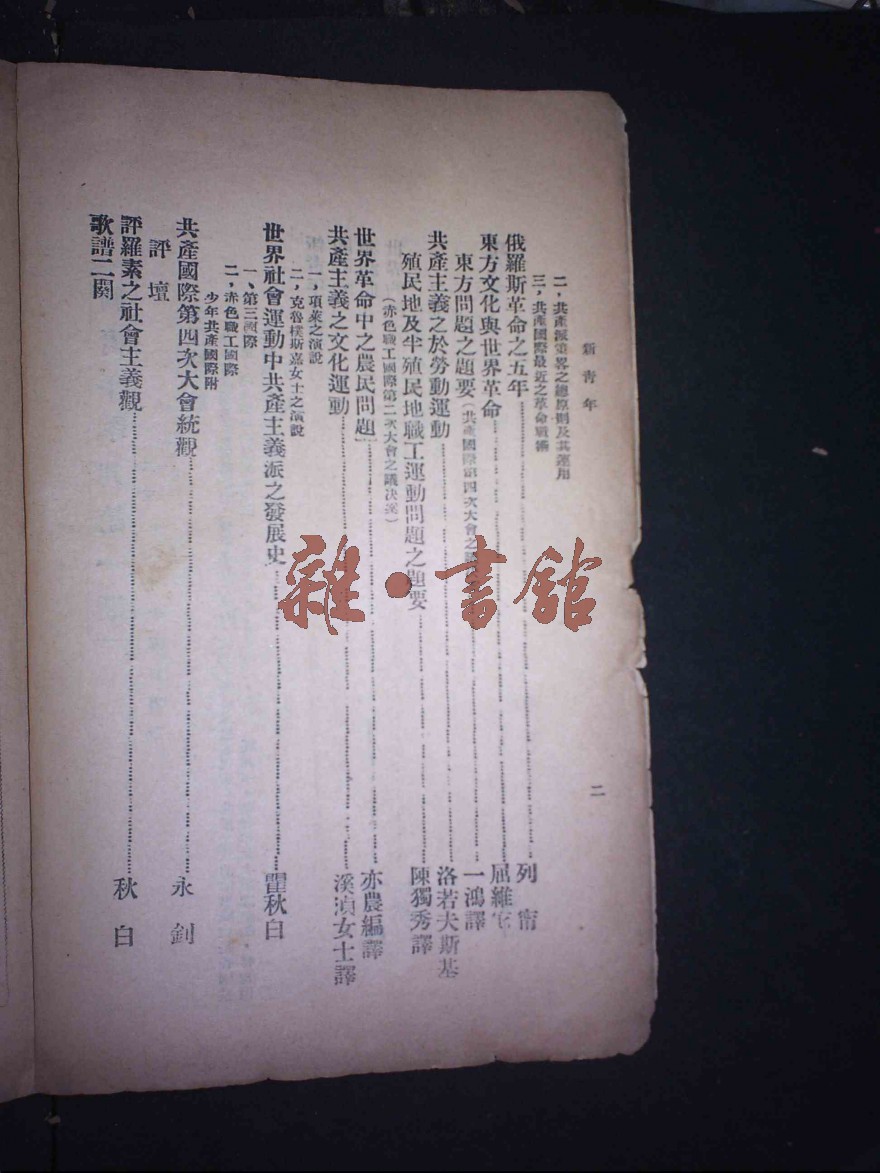 新青年
二
二，共產派策畧之總原則及其運用
三，共產國際最近之革命戰術
俄羅斯革命之五年……列甯
東方文化與世界革命……屈維它
東方問題之題要（共產國際第四次大會之……一鴻譯
共產主義之於勞動運動……洛若夫斯基
殖民地及半殖民地職工運動問題之題要……陳獨秀譯
（赤色職工國際第二次大會之議决案）
世界革命中之農民問題……亦農編譯
共產主義之文化運動……溪湞女士譯
一，項萊之演說
二，克魯撲斯嘉女士之演說
世界社會運動中共產主義派之發展史……瞿秋白
一、第三國際
二，赤色職工國際
少年共產國際附
共產國際第四次大會統觀……永釗
評壇
評羅素之社會主義觀……秋白
歌譜二闋
雜·書館